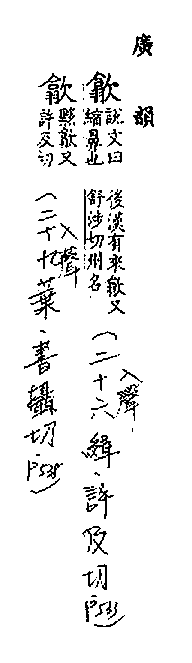 廣韻
歙 說文曰
縮鼻也
後漢有來歙又
舒涉切州名
(入聲二十六緝、許及切、P533)
歙 黟歙又
許及切
(入聲二十九葉、書攝切、P538)